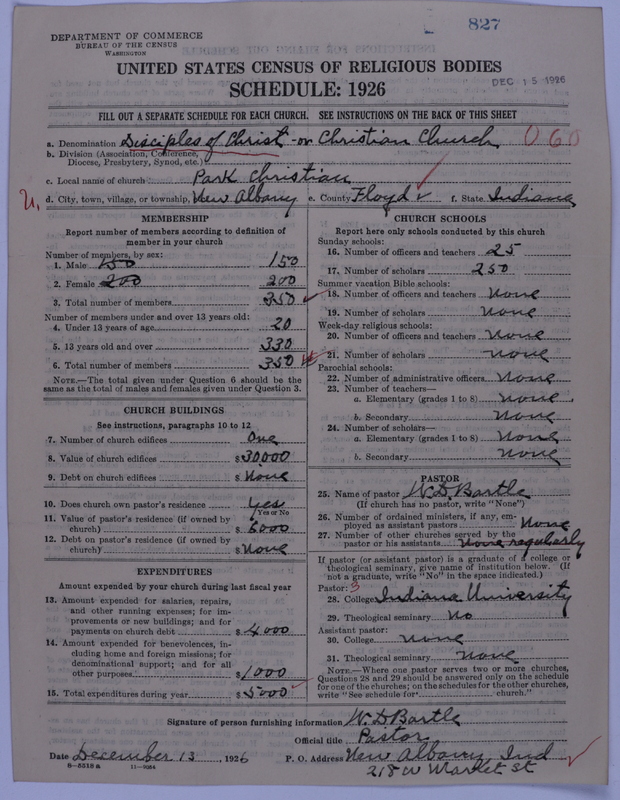 827
DEPARTMENT OF COMMERCE
BUREAU OF THE CENSUS
WASHINGTON
UNITED STATES CENSUS OF RELIGIOUS BODIES
DEC 15 1926
SCHEDULE: 1926
FILL OUT A SEPARATE SCHEDULE FOR EACH CHURCH. SEE INSTRUCTIONS ON THE BACK OF THIS SHEET
a. Denomination Disciples of Christ - or Christian Church 060
b. Division (Association, Conference, Diocese, Presbytery, Synod, etc.)
c. Local name of church Park Christian
d. City, town, village, or township, New Albany e. County Floyd f. State Indiana
MEMBERSHIP
Report number of members according to definition of
member in your church
Number of members, by sex:
1. Male 150 150
2. Female 200 200
3. Total number of members 350
Number of members under and over 13 years old:
4. Under 13 years of age 20
5. 13 years old and over 330
6. Total number of members 350
NOTE.—The total given under Question 6 should be
same as the total of males and females given under Question 3.
CHURCH BUILDINGS
See instructions, paragraphs 10 to 12
7. Number of church edifices One
8. Value of church edifices $30,000
9. Debt on church edifices $ None
10. Does church own pastor's residence Yes
Yes or No
11. Value of pastor's residence (if owned by
church) $ 6000
12. Debt on pastor's residence (if owned by
church) $ None
EXPENDITURES
Amount expended by your church during last fiscal year
13. Amount expended for salaries, repairs,
and other running expenses; for im-
provements or new buildings; and for
payments on church debt $ 4000
14. Amount expended for benevolences, in-
cluding home and foreign missions; for
denominational support; and for all
other purposes $ 1000
15. Total expenditures during year $ 5000
CHURCH SCHOOLS
Report here only schools conducted by this church
Sunday schools:
16. Number of officers and teachers 25
17. Number of scholars 250
Summer vacation Bible schools:
18. Number of officers and teachers None
19. Number of scholars None
Week-day religious schools:
20. Number of officers and teachers None
21. Number of scholars None
Parochial schools:
22. Number of administrative officers None
23. Number of teachers—
a. Elementary (grades 1 to 8) None
b. Secondary None
24. Number of scholars—
a. Elementary (grades 1 to 8) None
b. Secondary None
PASTOR
25. Name of pastor W. D. Bartle
(If church has no pastor, write "None")
26. Number of ordained ministers, if any, em-
ployed as assistant pastors None
27. Number of other churches served by the
pastor or his assistants None regularly
If pastor (or assistant pastor) is a graduate of a college or
theological seminary, give name of institution below. (If
not a graduate, write "No" in the space indicated.)
Pastor: 3
28. College Indiana University
29. Theological seminary No
Assistant pastor:
30. College None
31. Theological seminary None
NOTE.—Where one pastor serves two or more churches,
Questions 28 and 29 should be answered only on the schedule
for one of the churches; on the schedules for the other churches,
write "See schedule for church."
Signature of person furnishing information W. D. Bartle
Official title Pastor
Date December 13, 1926 P. O. Address New Albany Ind
218 W Market St
8—5518 a 11—9064